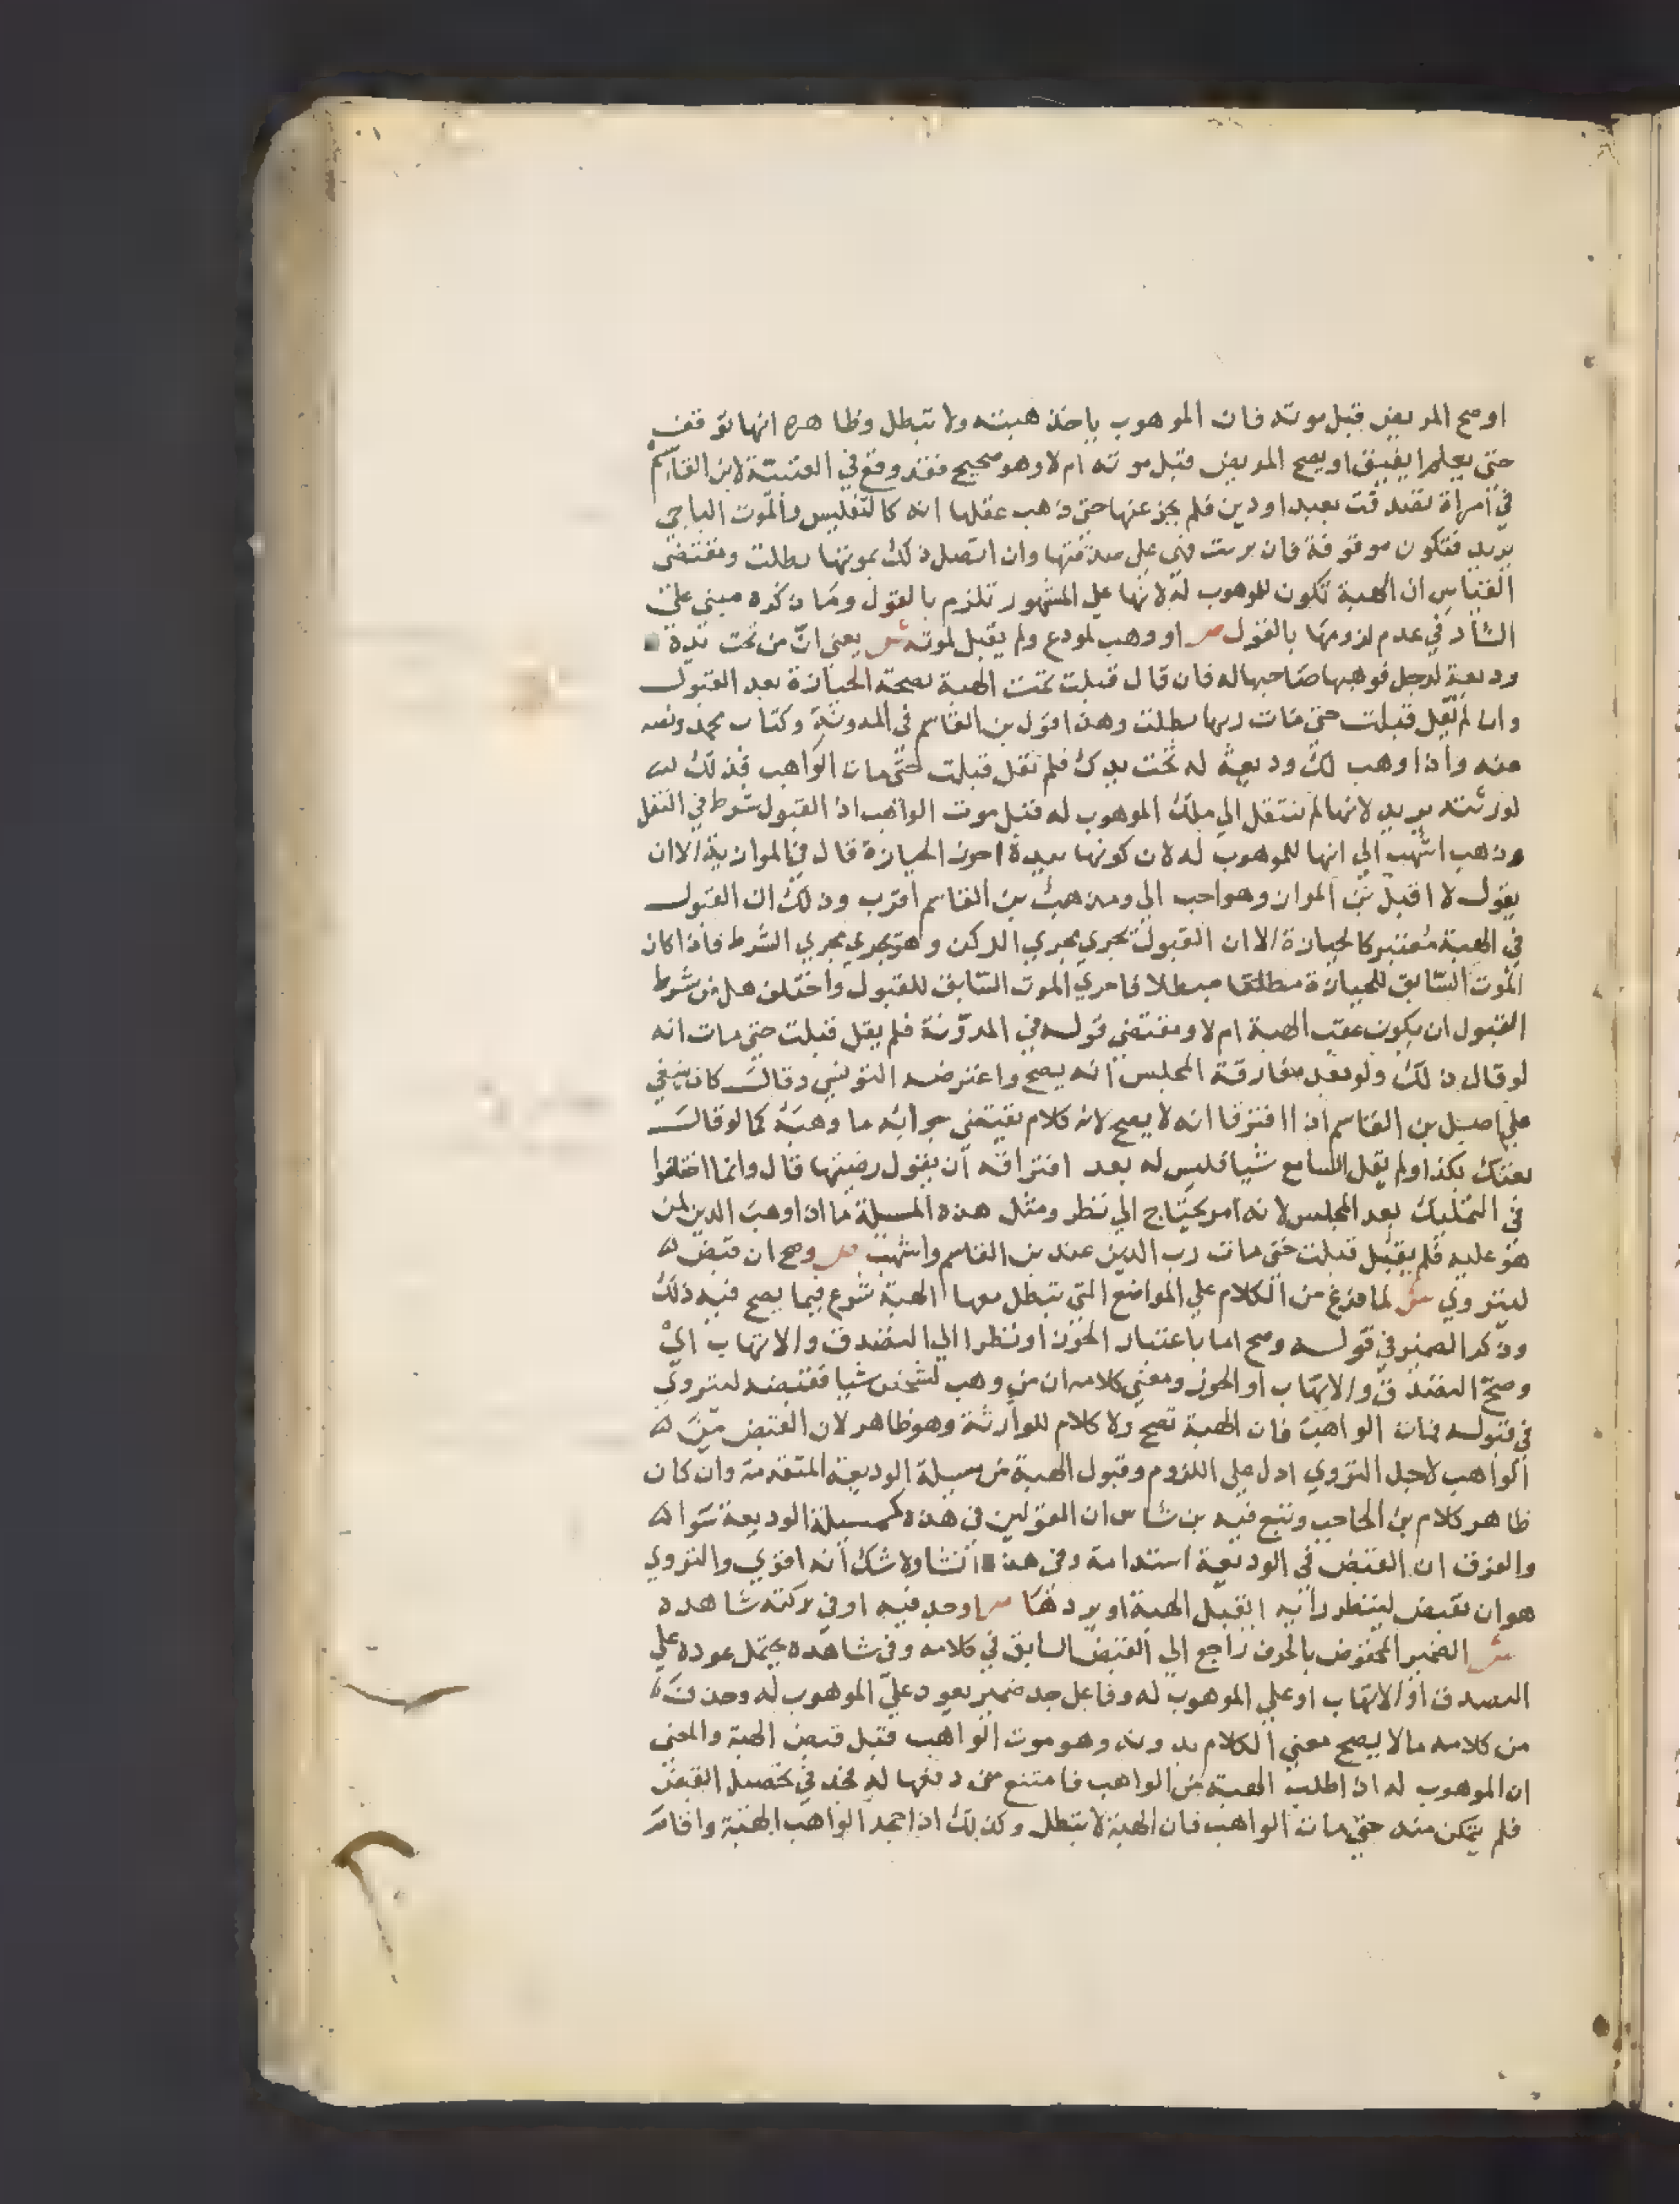 اوصح المريض قبل موته فان الموهوب ياخذ هبته ولا تبطل وظاهره انها توقف
حتى يعلم ايفيق او يصح المريض قبل موته ام لا وهو صحيح فقد وقع في العتبية لابن القاسم
في امراة تصدقت بعبد او دين فلم يجز عنها حتى ذهب عقلها انه كالتفليس والموت الباجي
يريد فتكون موقوفة فان بريت فهي على صدقتها وان اتصل ذلك بموتها بطلت ومقتضى
القياس ان الهبة تكون للموهوب له لانها على المشهور تلزم بالقول وما ذكره مبني على
الشاذ في عدم لزومها بالقول ص او وهب لمودع ولم يقبل لموته ش يعني ان من تحت يده
وديعة لرجل فوهبها صاحبها له فان قال قبلت تمت الهبة بصحة الحيازة بعد القبول
وان لم يقل قبلت حتى مات ربها بطلت وهذا قول بن القاسم في المدونة وكتاب محمد ونصه
منه واذا وهب لك وديعة له تحت يدك فلم تقل قبلت حتى مات الواهب فذلك
لورثته يريد لانها لم تنتقل الي ملك الموهوب له قبل موت الواهب اذ القبول شرط في النقل
وذهب اشهب الي انها للموهوب له لان كونها بيده احوز الحيازة قال في الموازية الا ان
يقول لا اقبل بن المواز وهو احب الي ومذهب بن القاسم اقرب وذلك ان القبول
في الهبة معتبر كالحيازة الا ان القبول يجري مجري الركن وهو يجري مجري الشرط فاذا كان
الموت السابق للحيازة مطلقا مبطلا فاحري الموت السابق للقبول واختلف هل من شرط
القبول ان يكون عقب الهبة ام لا ومقتضى قوله في المدونة فلم يقل قبلت حتى مات انه
لو قال ذلك ولو بعد مفارقة المجلس انه يصح واعترضه التونسي وقال كان ينبغي
على اصل بن القاسم اذا افترقا انه لا يصح لانه كلام يقتضى جوابه ما وهبه كما لو قال
بعتك بكذا ولم يقل السامع شيا فليس له بعد افتراقه ان يقول رضيتها قال وانما اختلفوا
في التمليك بعد المجلس لانه امر يحتاج الي نظر ومثل هذه المسيلة ما اذا وهب الدين لمن
هو عليه فلم يقبل قبلت حتى مات رب الدين عند بن القاسم واشهب ص وصح ان قبض
ليتروي ش لما فرغ من الكلام على المواضع التي تبطل معها الهبة شرع فيما يصح فيه ذلك
وذكر الضمير في قوله وصح اما باعتبار الحوز او نظرا الي التصدق والاتهاب اي
وصح التصدق والاتهاب او الحوز ومعنى كلامه ان من وهب لشخص شيا فقبضه ليتروي
في قبوله فمات الواهب فان الهبة تصح ولا كلام للوارثة وهو ظاهر لان القبض من
الواهب لاجل التروي ادل على اللزوم وقبول الهبة من مسيلة الوديعة المتقدمة وان كان
ظاهر كلام بن الحاجب وتبع فيه بن شاس ان القولين في هذه كمسيلة الوديعة سوا
والفرق ان القبض في الوديعة استدامة وفي هذه انشا ولا شك انه اقوي والتروي
هو ان يقبض لينظر رايه ايقبل الهبة او يردها ص او جد فيه او في تزكية شاهده
ش الضمير المخفوض بالحرف راجع الي القبض السابق في كلامه وفي شاهده يحتمل عوده على
التصدق او الاتهاب او على الموهوب له وفاعل جد ضمير يعود على الموهوب له وحذف
من كلامه ما لا يصح معنى الكلام بدونه وهو موت الواهب قبل قبض الهبة والمعنى
ان الموهوب له اذا طلب الهبة من الواهب فامتنع من دفعها له فجد في تحصيل القبض
فلم يتمكن منه حتى مات الواهب فان الهبة لا تبطل وكذلك اذا جحد الواهب الهبة واقام